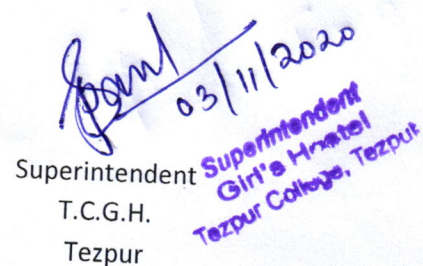 03/11/2020
Superintendent
T.C.G.H.
Tezpur
Superintendent
Girl's Hostel
Tezpur College, Tezpur